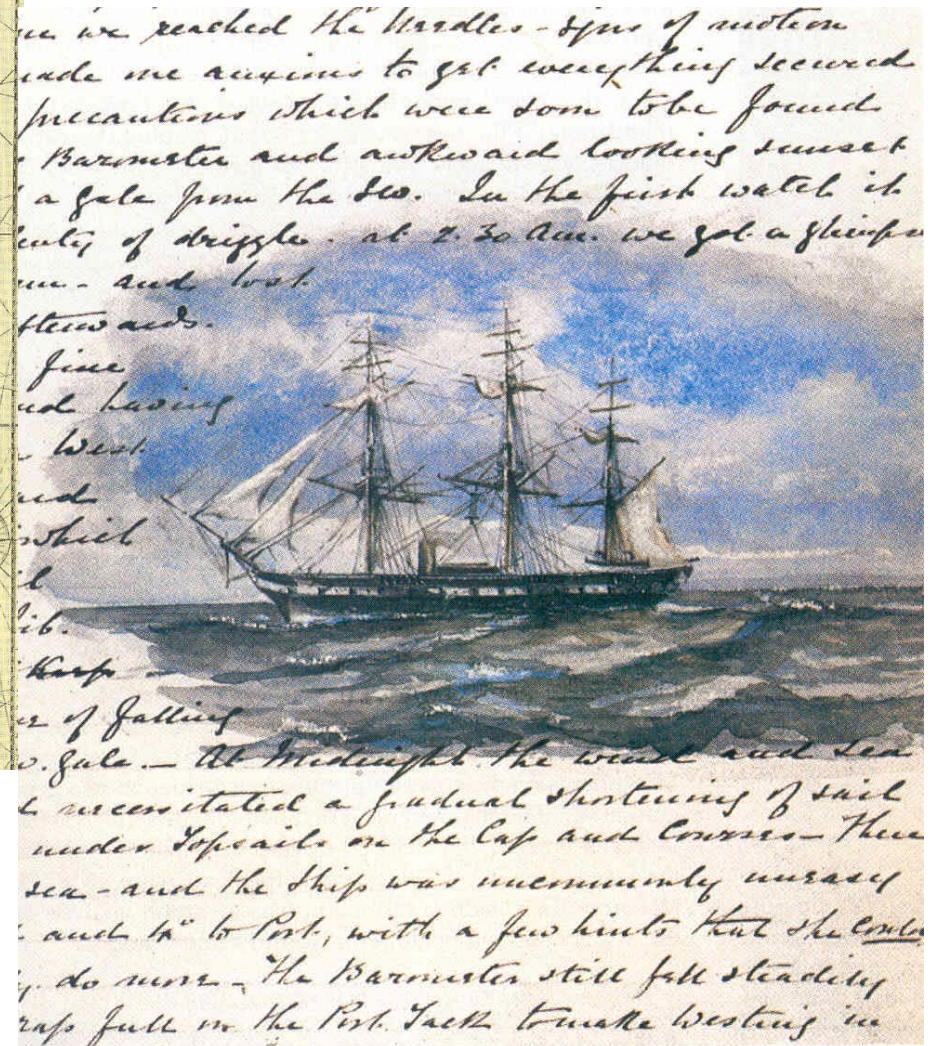 we reached the Needles - signs of motion
made me anxious to get everything secured
precautions which were soon to be found
Barometer and awkward looking sunset
a gale from the SW. In the first watch it
plenty of drizzle. at 2.30 am. we got a glimpse
and lost
fine
and having
West
and
which
of falling
gale. - At Midnight the wind and sea
necessitated a gradual shortening of sail
under Topsails on the Cap and Courses - There
sea - and the Ship was uncommonly uneasy
and to Port, with a few hints that she could
do more - The Barometer still fell steadily
full on the Port Tack to make Westing in